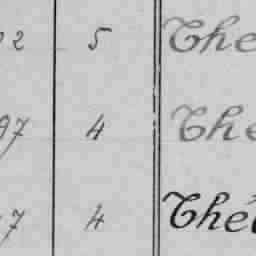 2 5 The
97 4 The
7 4 Thé